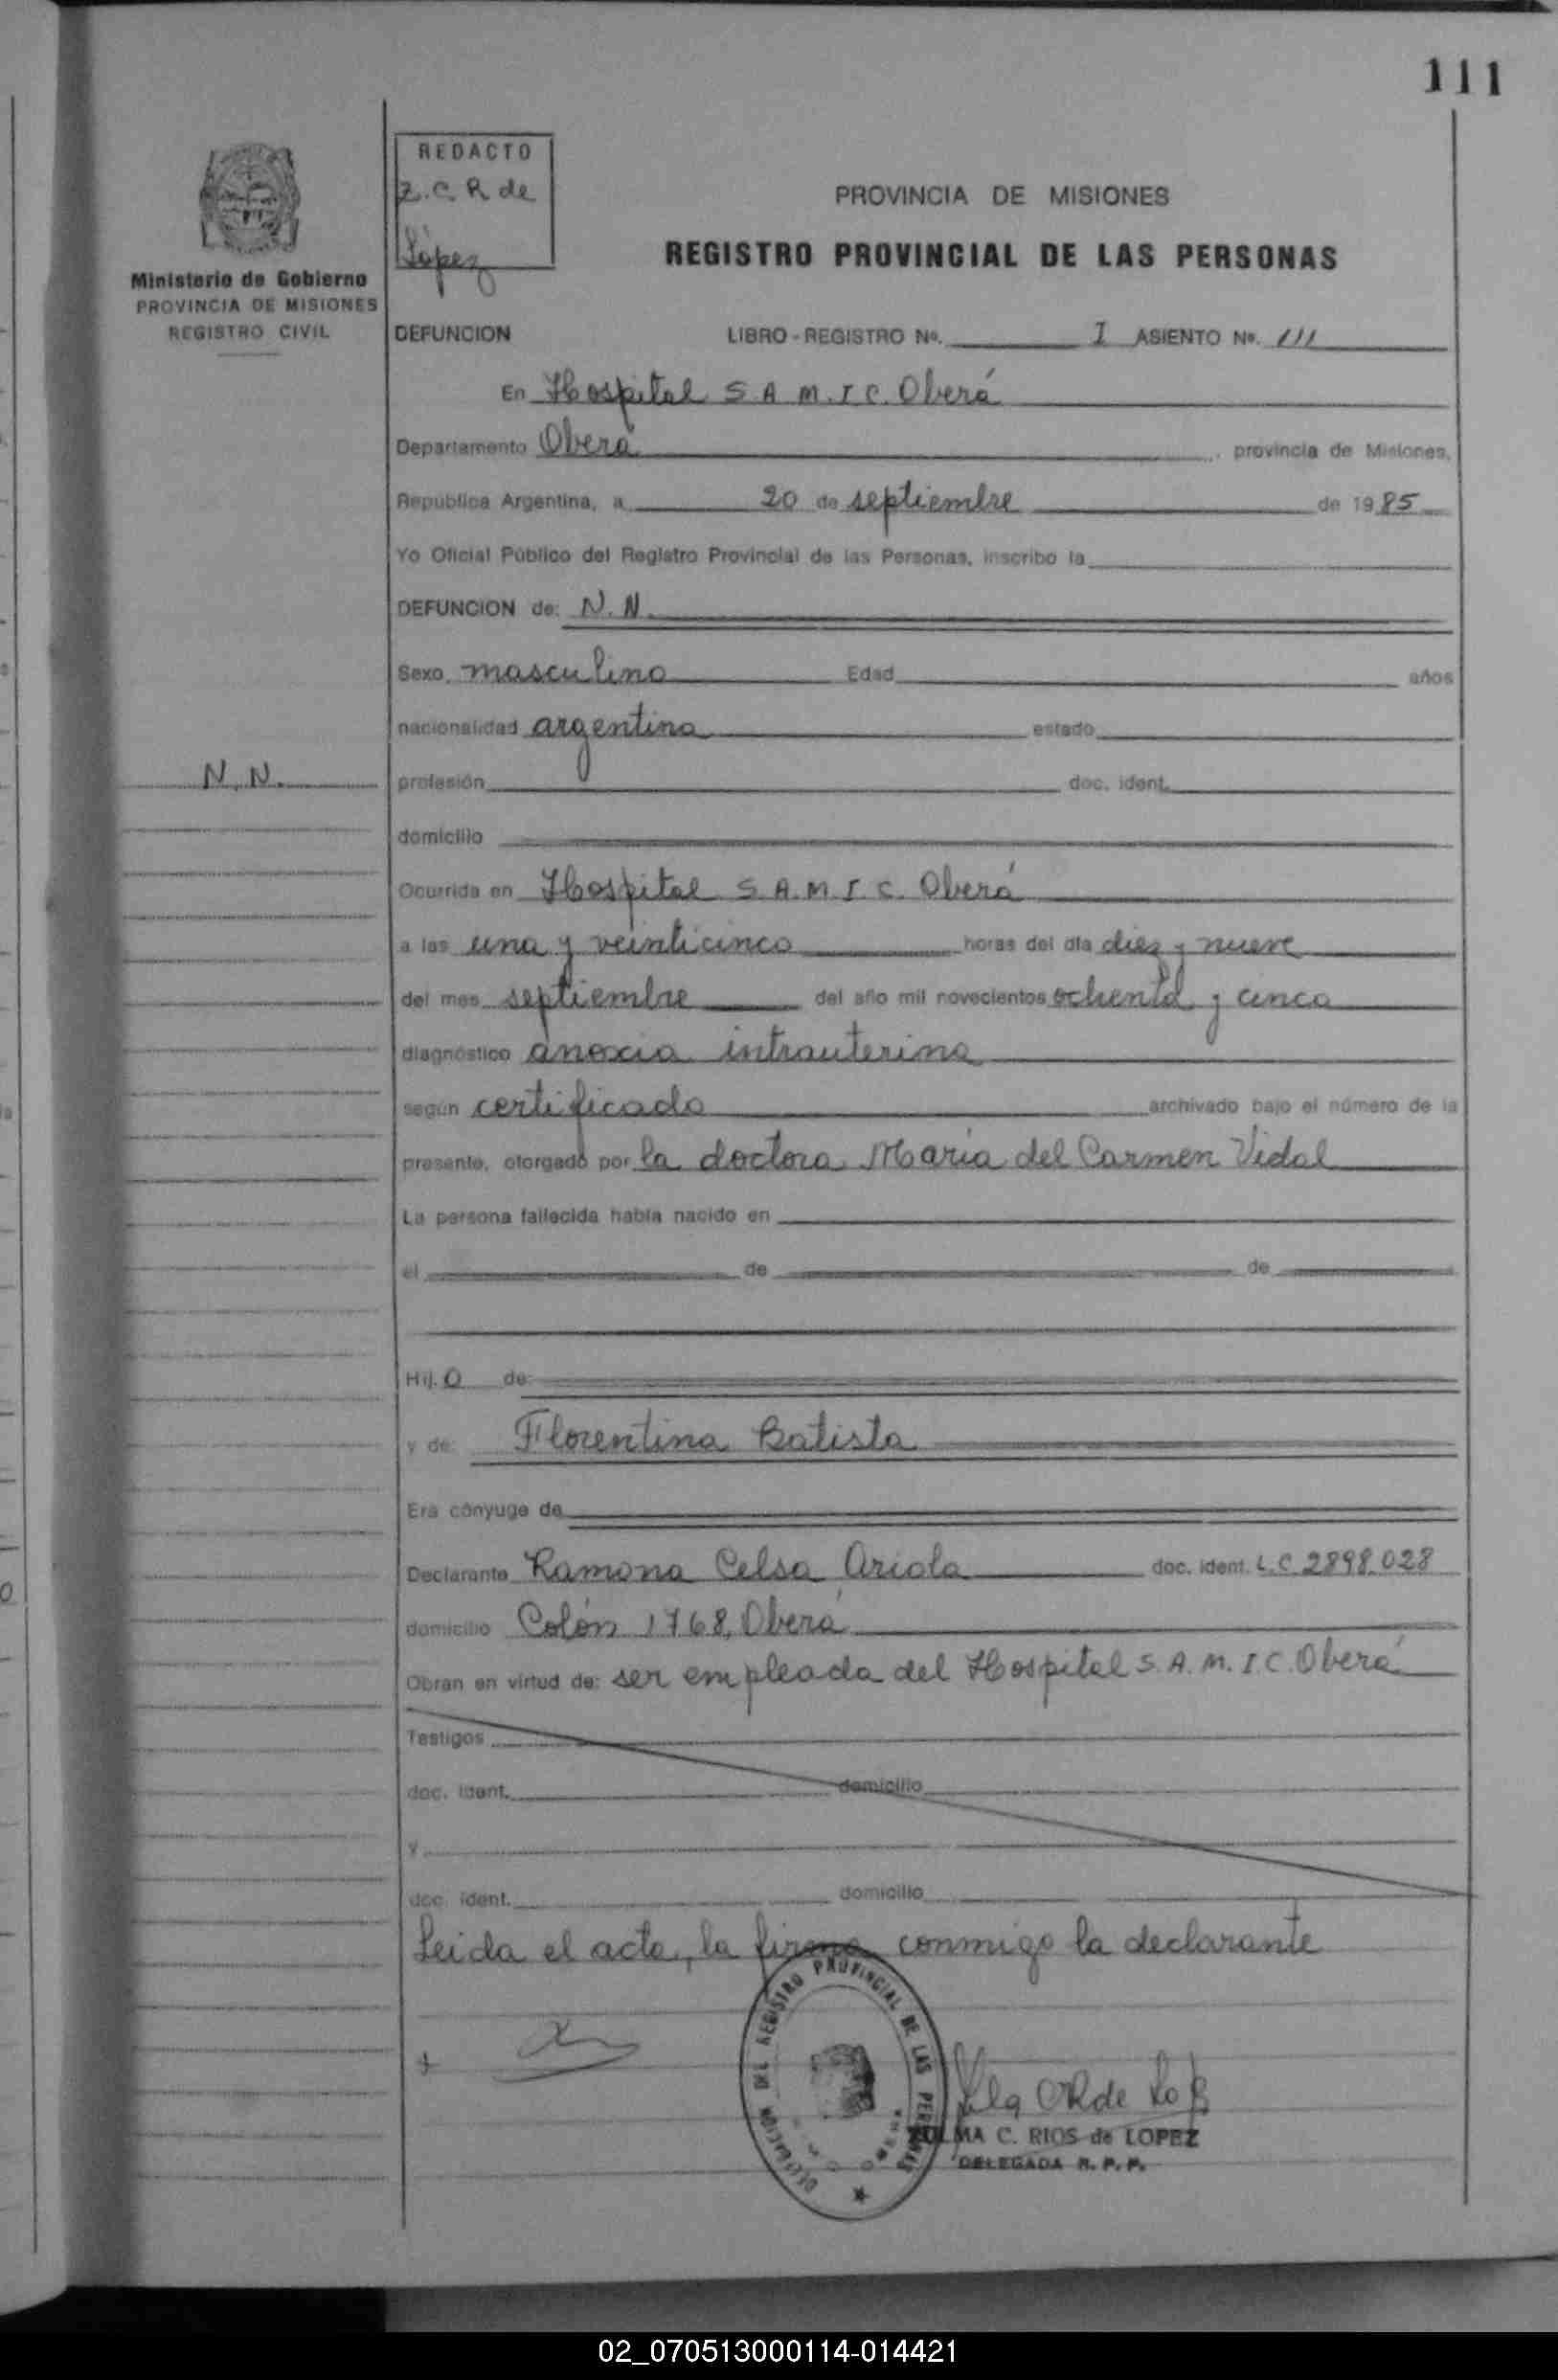 111
REDACTO
Z.C.R de
López
Ministerio de Gobierno
PROVINCIA DE MISIONES
REGISTRO CIVIL
PROVINCIA DE MISIONES
REGISTRO PROVINCIAL DE LAS PERSONAS
DEFUNCION LIBRO-REGISTRO No. I ASIENTO No. 111
En Hospital S.A.M.I.C. Oberá
Departamento Oberá, provincia de Misiones,
República Argentina, a 20 de septiembre de 1985
Yo Oficial Público del Registro Provincial de las Personas, inscribo la
DEFUNCION de: N.N.
Sexo masculino Edad años
nacionalidad argentina estado
N.N.
profesión doc. ident.
domicilio
Ocurrida en Hospital S.A.M.I.C. Oberá
a las una y veinticinco horas del día diez y nueve
del mes septiembre del año mil novecientos ochenta y cinco
diagnóstico anoxia intrauterina
según certificado archivado bajo el número de la
presente, otorgado por la doctora María del Carmen Vidal
La persona fallecida había nacido en
el de de
Hij.o de:
y de: Florentina Batista
Era cónyuge de
Declarante Ramona Celsa Ariola doc. ident. L.C 2898.028
domicilio Colón 1768, Oberá
Obran en virtud de: ser empleada del Hospital S.A.M.I.C. Oberá
Testigos
doc. ident. domicilio
y
doc. ident. domicilio
Leída el acta, la firma conmigo la declarante
DELEGACION DEL REGISTRO PROVINCIAL DE LAS PERSONAS
ZULMA C. RIOS de LOPEZ
DELEGADA R.P.P.
02_070513000114-014421